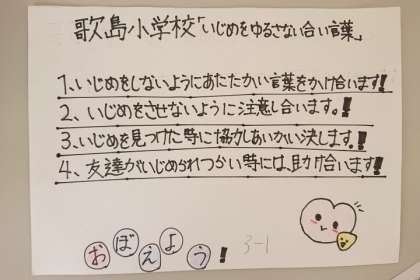 歌島小学校「いじめをゆるさない合い言葉」
1、いじめをしないようにあたたかい言葉をかけ合います!!
2、いじめをさせないように注意し合います。!!
3、いじめを見つけた時に協力しあいかい決します。!!
4、友達がいじめられつらい時には、助け合います!!
おぼえよう!
3-1